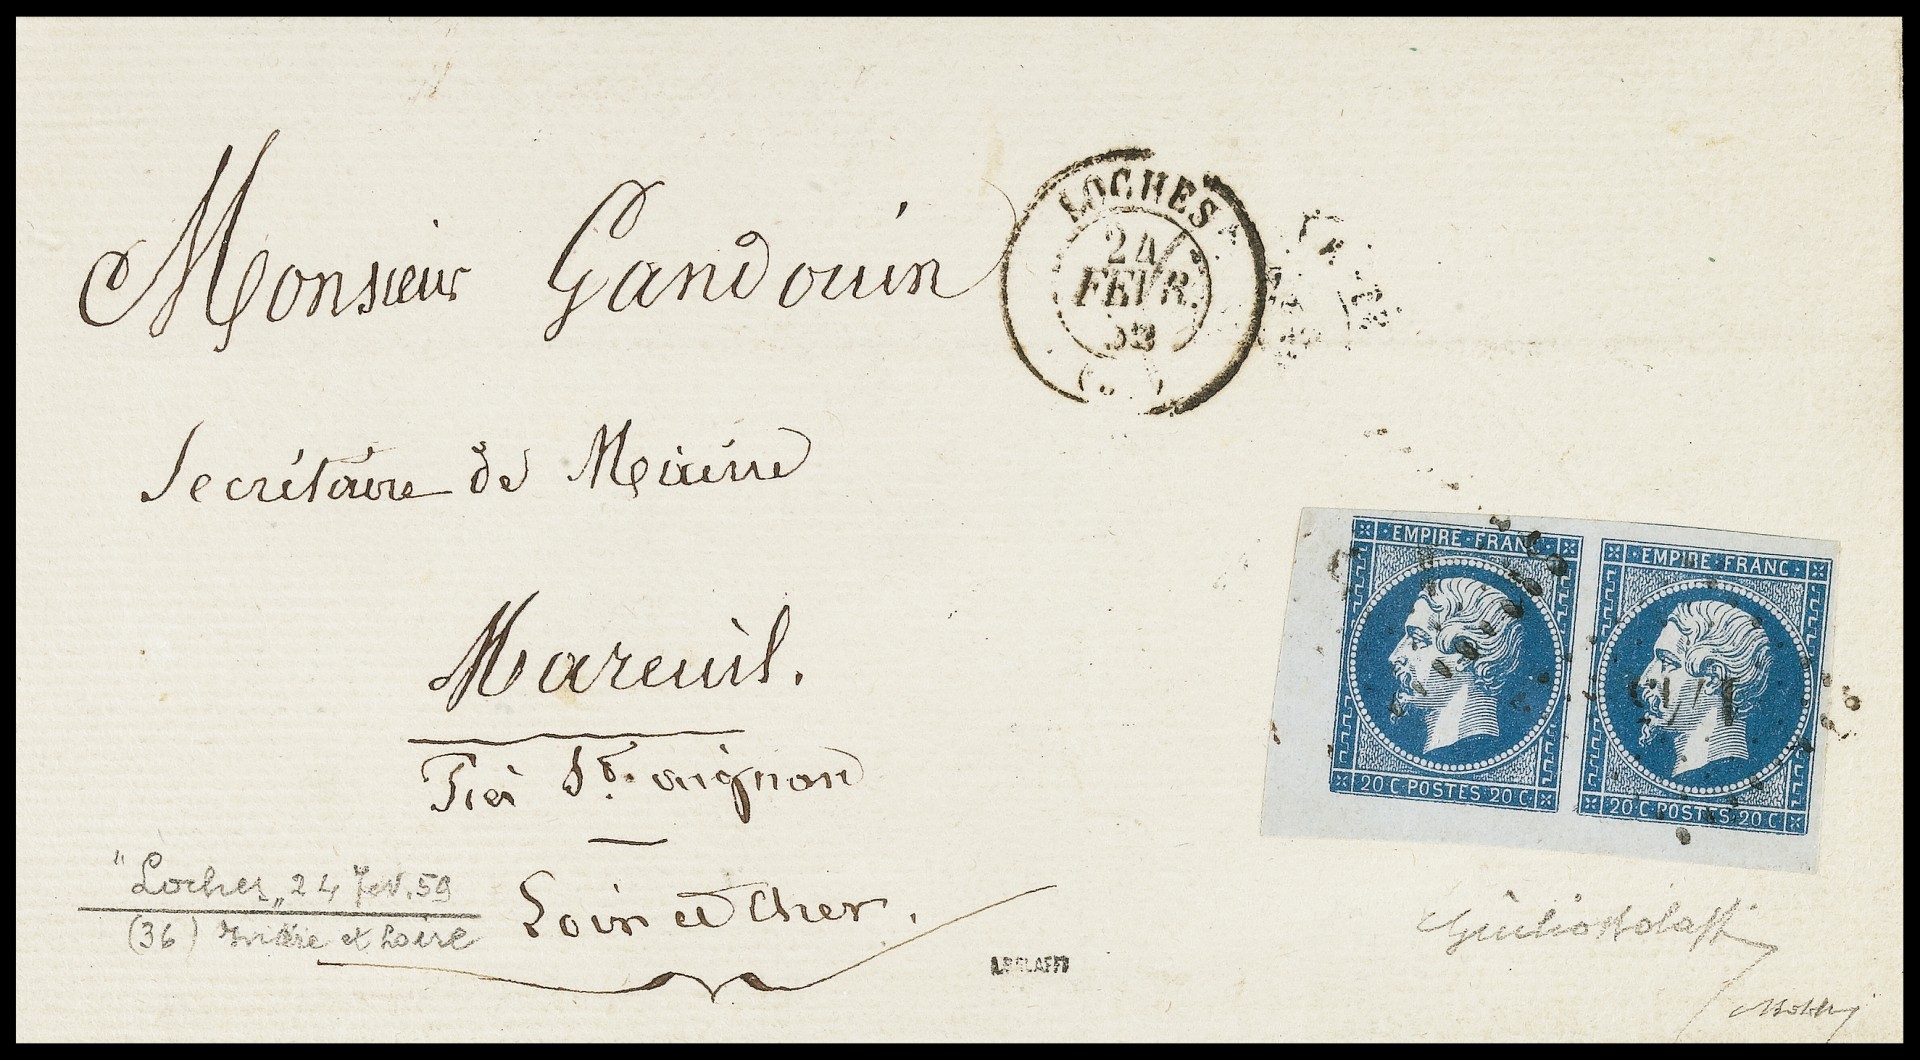 Monsieur Gandouin
LOCHES
24
FEVR.
Secrétaire de Mairie
EMPIRE · FRANC ·
EMPIRE · FRANC ·
Mareuil.
Près St. aignan
20 C · POSTES · 20 C
20 C · POSTES · 20 C
"Loches" 24 Fev. 59
(36) Indre et Loire
Loir et Cher.
A.BOLAFFI
Giulio Bolaffi